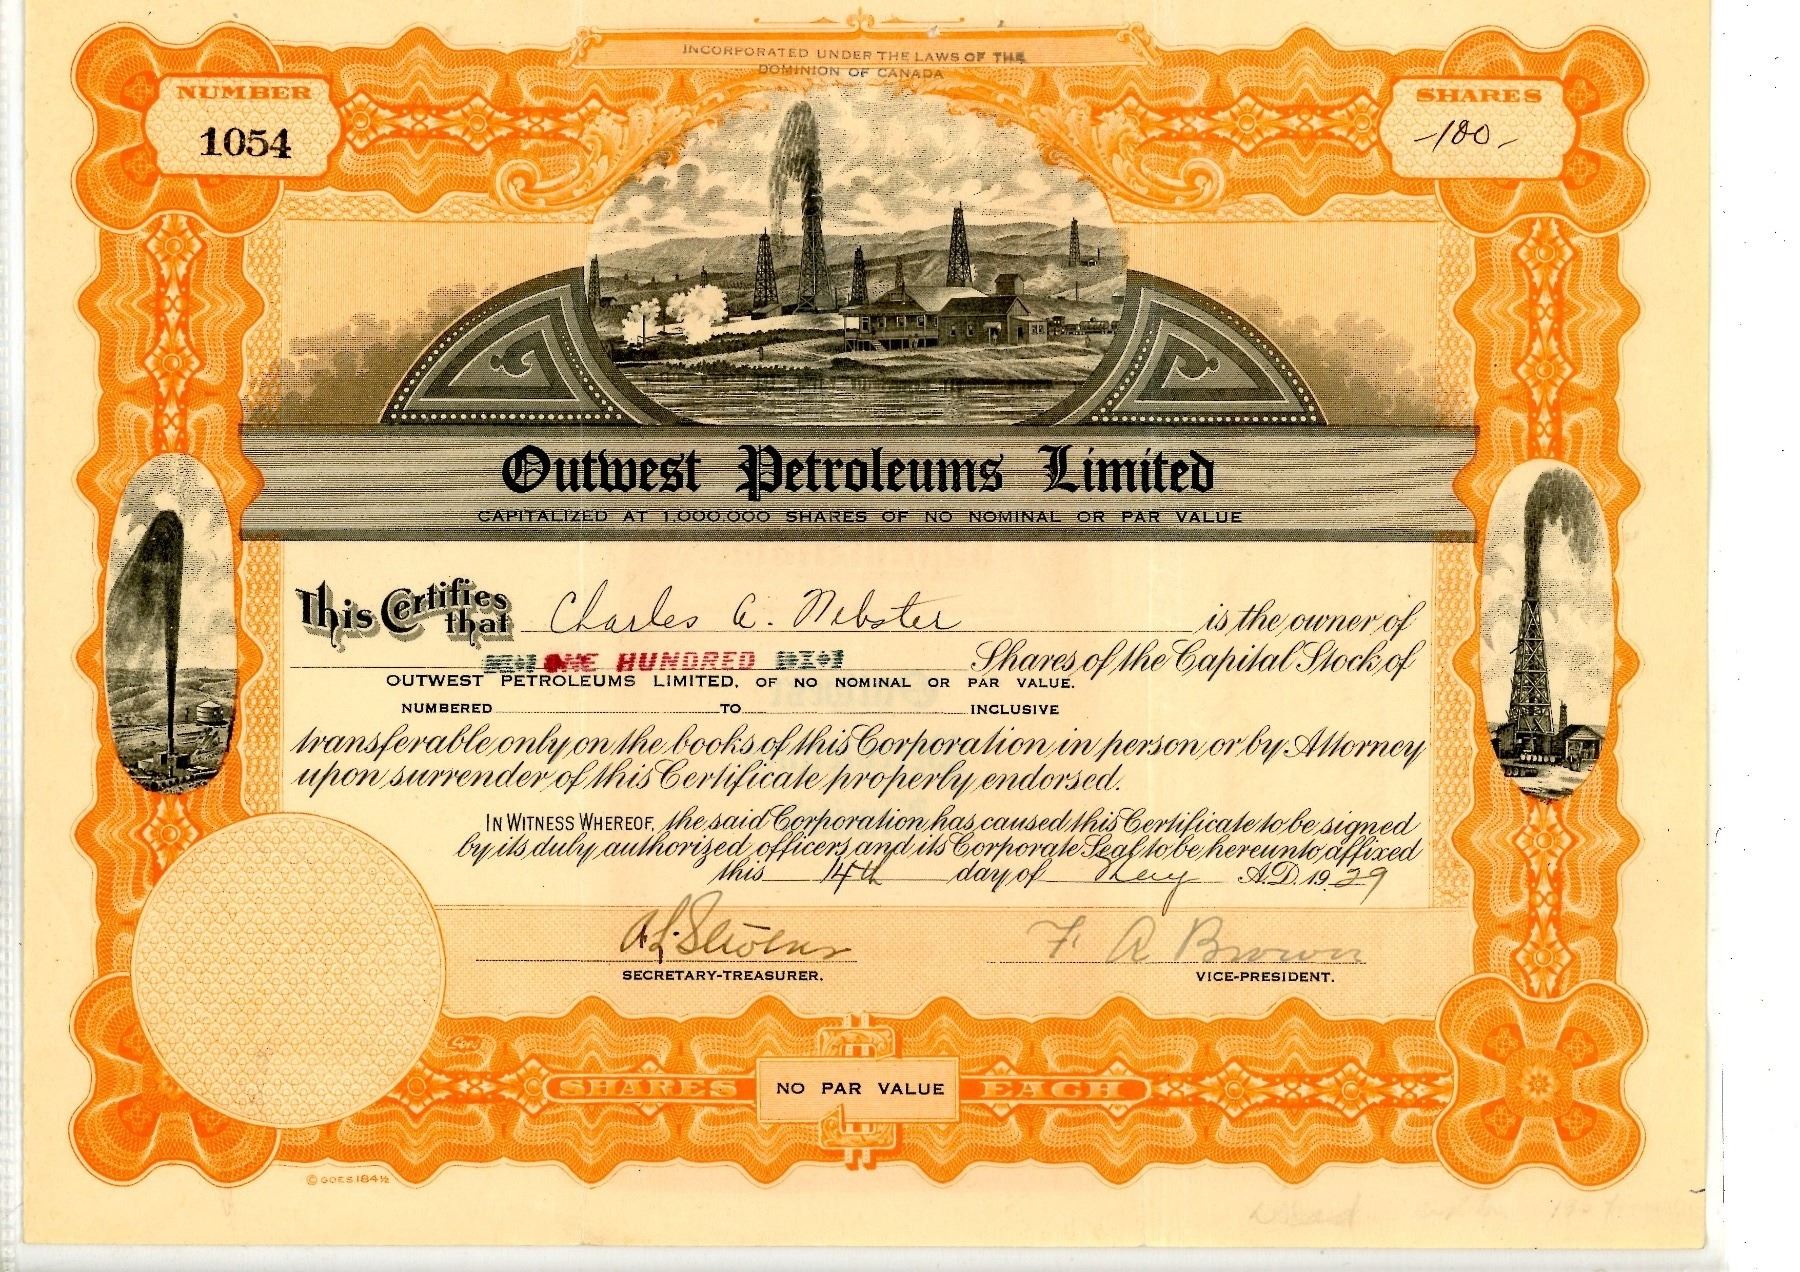 INCORPORATED UNDER THE LAWS OF THE
DOMINION OF CANADA
NUMBER
1054
SHARES
-100-
Outwest Petroleums Limited
CAPITALIZED AT 1,000,000 SHARES OF NO NOMINAL OR PAR VALUE
This Certifies that Charles A. Webster is the owner of
ONE HUNDRED Shares of the Capital Stock of
OUTWEST PETROLEUMS LIMITED, OF NO NOMINAL OR PAR VALUE.
NUMBERED TO INCLUSIVE
transferable only on the books of this Corporation in person or by Attorney
upon surrender of this Certificate properly endorsed.
IN WITNESS WHEREOF, the said Corporation has caused this Certificate to be signed
by its duly authorized officers and its Corporate Seal to be hereunto affixed
this 14th day of May A.D. 1929
F. A Brown
SECRETARY-TREASURER.
VICE-PRESIDENT.
SHARES NO PAR VALUE EACH
© GOES 184½